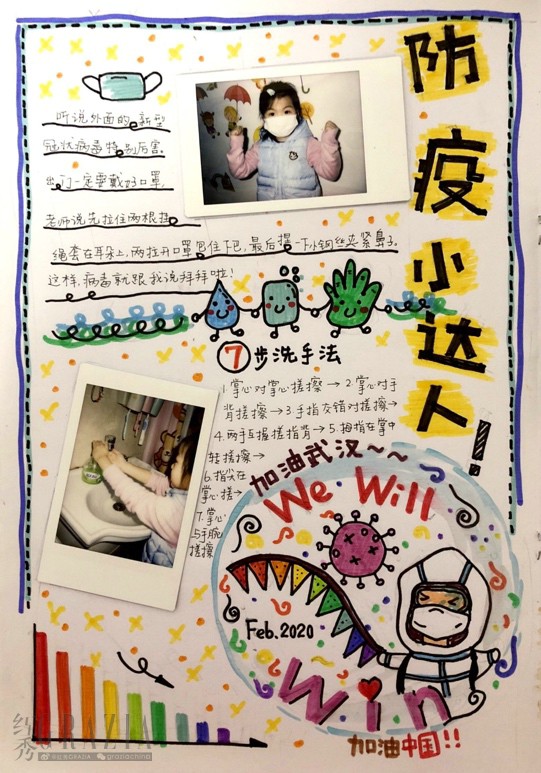 防疫小达人!
听说外面的新型
冠状病毒特别厉害。
出门一定要戴好口罩。
老师说先拉住两根挂
绳套在耳朵上,再拉开口罩包住下巴,最后捏一下小钢丝夹紧鼻子。
这样,病毒就跟我说拜拜啦!
7步洗手法
1.掌心对掌心搓擦→2.掌心对手
背搓擦→3手指交错对搓擦→
4.两手互握搓指背→5.拇指在掌中
转搓擦→
6.指尖在
掌心搓→
7.掌心
与手腕
搓擦
加油武汉~~
We Will
Feb.2020
Win
加油中国!!
红秀GRAZIA
@红秀GRAZIA
graziachina